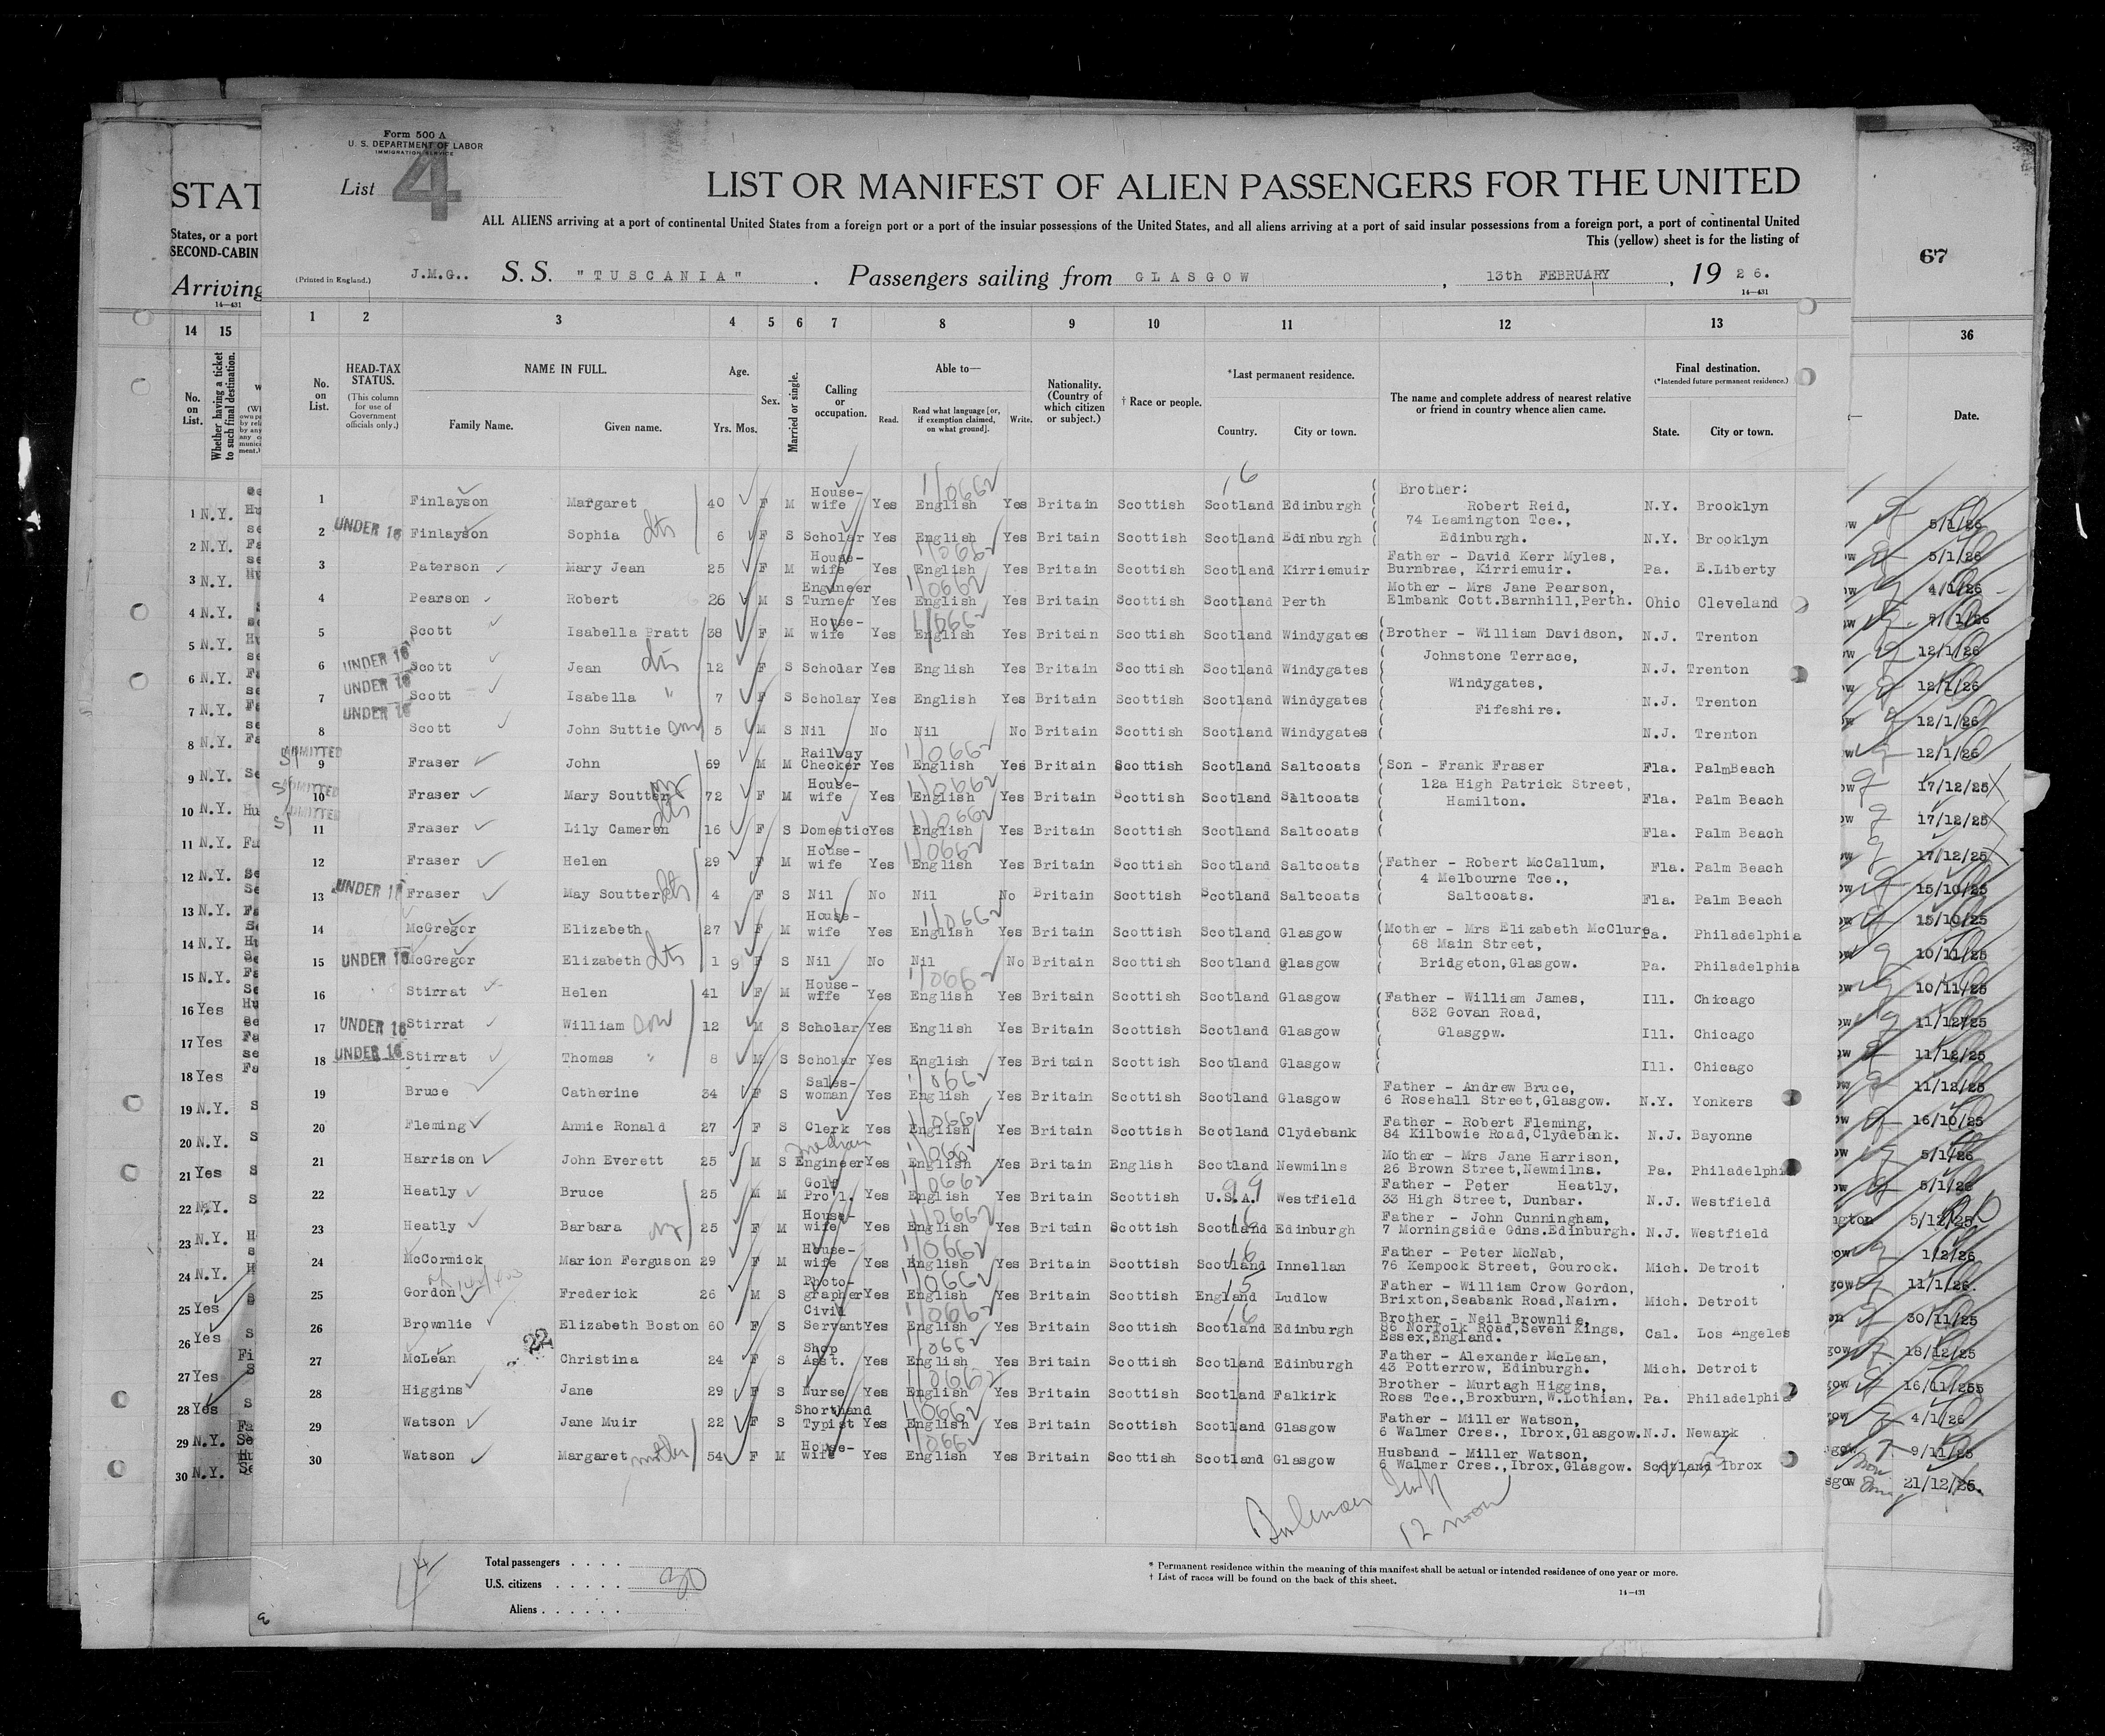 Form 500 A
U. S. DEPARTMENT OF LABOR
IMMIGRATION SERVICE
List 4
LIST OR MANIFEST OF ALIEN PASSENGERS FOR THE UNITED
ALL ALIENS arriving at a port of continental United States from a foreign port or a port of the insular possessions of the United States, and all aliens arriving at a port of said insular possessions from a foreign port, a port of continental United
This (yellow) sheet is for the listing of
(Printed in England.) J.M.G.. S. S. "TUSCANIA" . Passengers sailing from GLASGOW , 13th FEBRUARY , 19 26.
14—431
STAT
States, or a port
SECOND-CABIN
Arriving
14—431
67
1 2 3 4 5 6 7 8 9 10 11 12 13
14 15 36
No. on List.
HEAD-TAX STATUS.
(This column for use of Government officials only.)
NAME IN FULL.
Family Name. Given name.
Age.
Yrs. Mos.
Sex.
Married or single.
Calling or occupation.
Able to—
Read. Read what language [or, if exemption claimed, on what ground]. Write.
Nationality. (Country of which citizen or subject.)
† Race or people.
*Last permanent residence.
Country. City or town.
The name and complete address of nearest relative or friend in country whence alien came.
Final destination.
(*Intended future permanent residence.)
State. City or town.
No. on List.
Whether having a ticket to such final destination.
Date.
1 Finlayson Margaret 40 F M House-wife Yes English Yes Britain Scottish Scotland Edinburgh Brother: Robert Reid, N.Y. Brooklyn
2 UNDER 16 Finlayson Sophia 6 F S Scholar Yes English Yes Britain Scottish Scotland Edinburgh 74 Leamington Tce., Edinburgh. N.Y. Brooklyn
3 Paterson Mary Jean 25 F M House-wife Yes English Yes Britain Scottish Scotland Kirriemuir Father - David Kerr Myles, Burnbrae, Kirriemuir. Pa. E.Liberty
4 Pearson Robert 26 M S Engineer Turner Yes English Yes Britain Scottish Scotland Perth Mother - Mrs Jane Pearson, Elmbank Cott.Barnhill,Perth. Ohio Cleveland
5 Scott Isabella Pratt 38 F M House-wife Yes English Yes Britain Scottish Scotland Windygates Brother - William Davidson, N.J. Trenton
6 UNDER 16 Scott Jean 12 F S Scholar Yes English Yes Britain Scottish Scotland Windygates Johnstone Terrace, N.J. Trenton
7 UNDER 16 Scott Isabella " 7 F S Scholar Yes English Yes Britain Scottish Scotland Windygates Windygates, N.J. Trenton
8 UNDER 16 Scott John Suttie 5 M S Nil No Nil No Britain Scottish Scotland Windygates Fifeshire. N.J. Trenton
9 ADMITTED Fraser John 69 M M Railway Checker Yes English Yes Britain Scottish Scotland Saltcoats Son - Frank Fraser Fla. PalmBeach
10 ADMITTED Fraser Mary Soutter 72 F M House-wife Yes English Yes Britain Scottish Scotland Saltcoats 12a High Patrick Street, Hamilton. Fla. Palm Beach
11 ADMITTED Fraser Lily Cameron 16 F S Domestic Yes English Yes Britain Scottish Scotland Saltcoats Fla. Palm Beach
12 Fraser Helen 29 F M House-wife Yes English Yes Britain Scottish Scotland Saltcoats Father - Robert McCallum, Fla. Palm Beach
13 UNDER 16 Fraser May Soutter 4 F S Nil No Nil No Britain Scottish Scotland Saltcoats 4 Melbourne Tce., Saltcoats. Fla. Palm Beach
14 McGregor Elizabeth 27 F M House-wife Yes English Yes Britain Scottish Scotland Glasgow Mother - Mrs Elizabeth McClure 68 Main Street, Pa. Philadelphia
15 UNDER 16 McGregor Elizabeth 1 9 F S Nil No Nil No Britain Scottish Scotland Glasgow Bridgeton,Glasgow. Pa. Philadelphia
16 Stirrat Helen 41 F M House-wffe Yes English Yes Britain Scottish Scotland Glasgow Father - William James, Ill. Chicago
17 UNDER 16 Stirrat William Son 12 M S Scholar Yes English Yes Britain Scottish Scotland Glasgow 832 Govan Road, Glasgow. Ill. Chicago
18 UNDER 16 Stirrat Thomas " 8 M S Scholar Yes English Yes Britain Scottish Scotland Glasgow Ill. Chicago
19 Bruce Catherine 34 F S Sales-woman Yes English Yes Britain Scottish Scotland Glasgow Father - Andrew Bruce, 6 Rosehall Street,Glasgow. N.Y. Yonkers
20 Fleming Annie Ronald 27 F S Clerk Yes English Yes Britain Scottish Scotland Clydebank Father - Robert Fleming, 84 Kilbowie Road,Clydebank. N.J. Bayonne
21 Harrison John Everett 25 M S Engineer Yes English Yes Britain English Scotland Newmilns Mother - Mrs Jane Harrison, 26 Brown Street,Newmilns. Pa. Philadelphia
22 Heatly Bruce 25 M M Golf Pro'l. Yes English Yes Britain Scottish U.S.A. Westfield Father - Peter Heatly, 33 High Street, Dunbar. N.J. Westfield
23 Heatly Barbara 25 F M House-wife Yes English Yes Britain Scottish Scotland Edinburgh Father - John Cunningham, 7 Morningside Gdns.Edinburgh. N.J. Westfield
24 McCormick Marion Ferguson 29 F M House-wife Yes English Yes Britain Scottish Scotland Innellan Father - Peter McNab, 76 Kempock Street, Gourock. Mich. Detroit
25 Gordon Frederick 26 M S Photo-grapher Yes English Yes Britain Scottish England Ludlow Father - William Crow Gordon, Brixton,Seabank Road,Nairn. Mich. Detroit
26 Brownlie Elizabeth Boston 60 F S Civil Servant Yes English Yes Britain Scottish Scotland Edinburgh Brother - Neil Brownlie, 86 Norfolk Road,Seven Kings, Essex,England. Cal. Los Angeles
27 McLean Christina 24 F S Shop Asst. Yes English Yes Britain Scottish Scotland Edinburgh Father - Alexander McLean, 43 Potterrow, Edinburgh. Mich. Detroit
28 Higgins Jane 29 F S Nurse Yes English Yes Britain Scottish Scotland Falkirk Brother - Murtagh Higgins, Ross Tce.,Broxburn,W.Lothian. Pa. Philadelphia
29 Watson Jane Muir 22 F S Shorthand Typist Yes English Yes Britain Scottish Scotland Glasgow Father - Miller Watson, 6 Walmer Cres., Ibrox,Glasgow. N.J. Newark
30 Watson Margaret mother 54 F M House-wife Yes English Yes Britain Scottish Scotland Glasgow Husband - Miller Watson, 6 Walmer Cres.,Ibrox,Glasgow. Scotland Ibrox
12 noon
Total passengers . . . .
U.S. citizens . . . . . 30
Aliens . . . . . .
* Permanent residence within the meaning of this manifest shall be actual or intended residence of one year or more.
† List of races will be found on the back of this sheet.
14—431
1 N.Y. 5/1/26
2 N.Y. 5/1/26
3 N.Y. 4/1/26
4 N.Y.
5 N.Y. 12/1/26
6 N.Y. 12/1/26
7 N.Y. 12/1/26
8 N.Y. 12/1/26
9 N.Y. 17/12/25
10 N.Y. 17/12/25
11 N.Y. 17/12/25
12 N.Y. 15/10/25
13 N.Y. 15/10/25
14 N.Y. 10/11/25
15 N.Y. 10/11/25
16 Yes 11/12/25
17 Yes 11/12/25
18 Yes 11/12/25
19 N.Y. 16/10/25
20 N.Y. 5/1/26
21 Yes 5/1/26
22 N.Y. 5/12/25
23 N.Y. 1/2/26
24 N.Y. 11/1/26
25 Yes 30/11/25
26 Yes 18/12/25
27 Yes 16/11/255
28 Yes 4/1/26
29 N.Y. 9/11/25
30 N.Y. 21/12/25